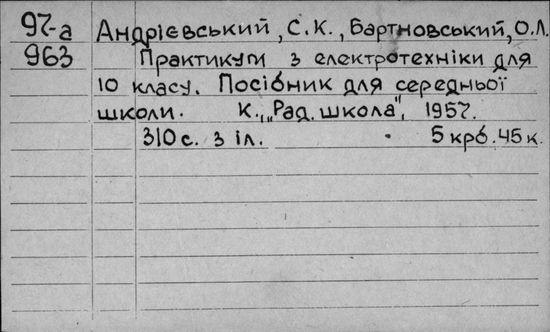 97-а Андрієвський, С.К., Бартновський, О.Л.
963 Практикум з електротехніки для
10 класу. Посібник для середньої
школи. К., „Рад. школа", 1957.
310 с. з іл. 5 крб. 45 к.